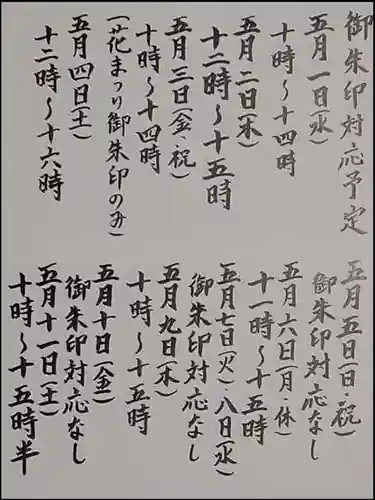 御朱印対応予定
五月一日(水)
十時〜十四時
五月二日(木)
十二時〜十五時
五月三日(金・祝)
十時〜十四時
(花まつり御朱印のみ)
五月四日(土)
十二時〜十六時
五月五日(日・祝)
御朱印対応なし
五月六日(月・休)
十一時〜十五時
五月七日(火)・八日(水)
御朱印対応なし
五月九日(木)
十時〜十五時
五月十日(金)
御朱印対応なし
五月十一日(土)
十時〜十五時半